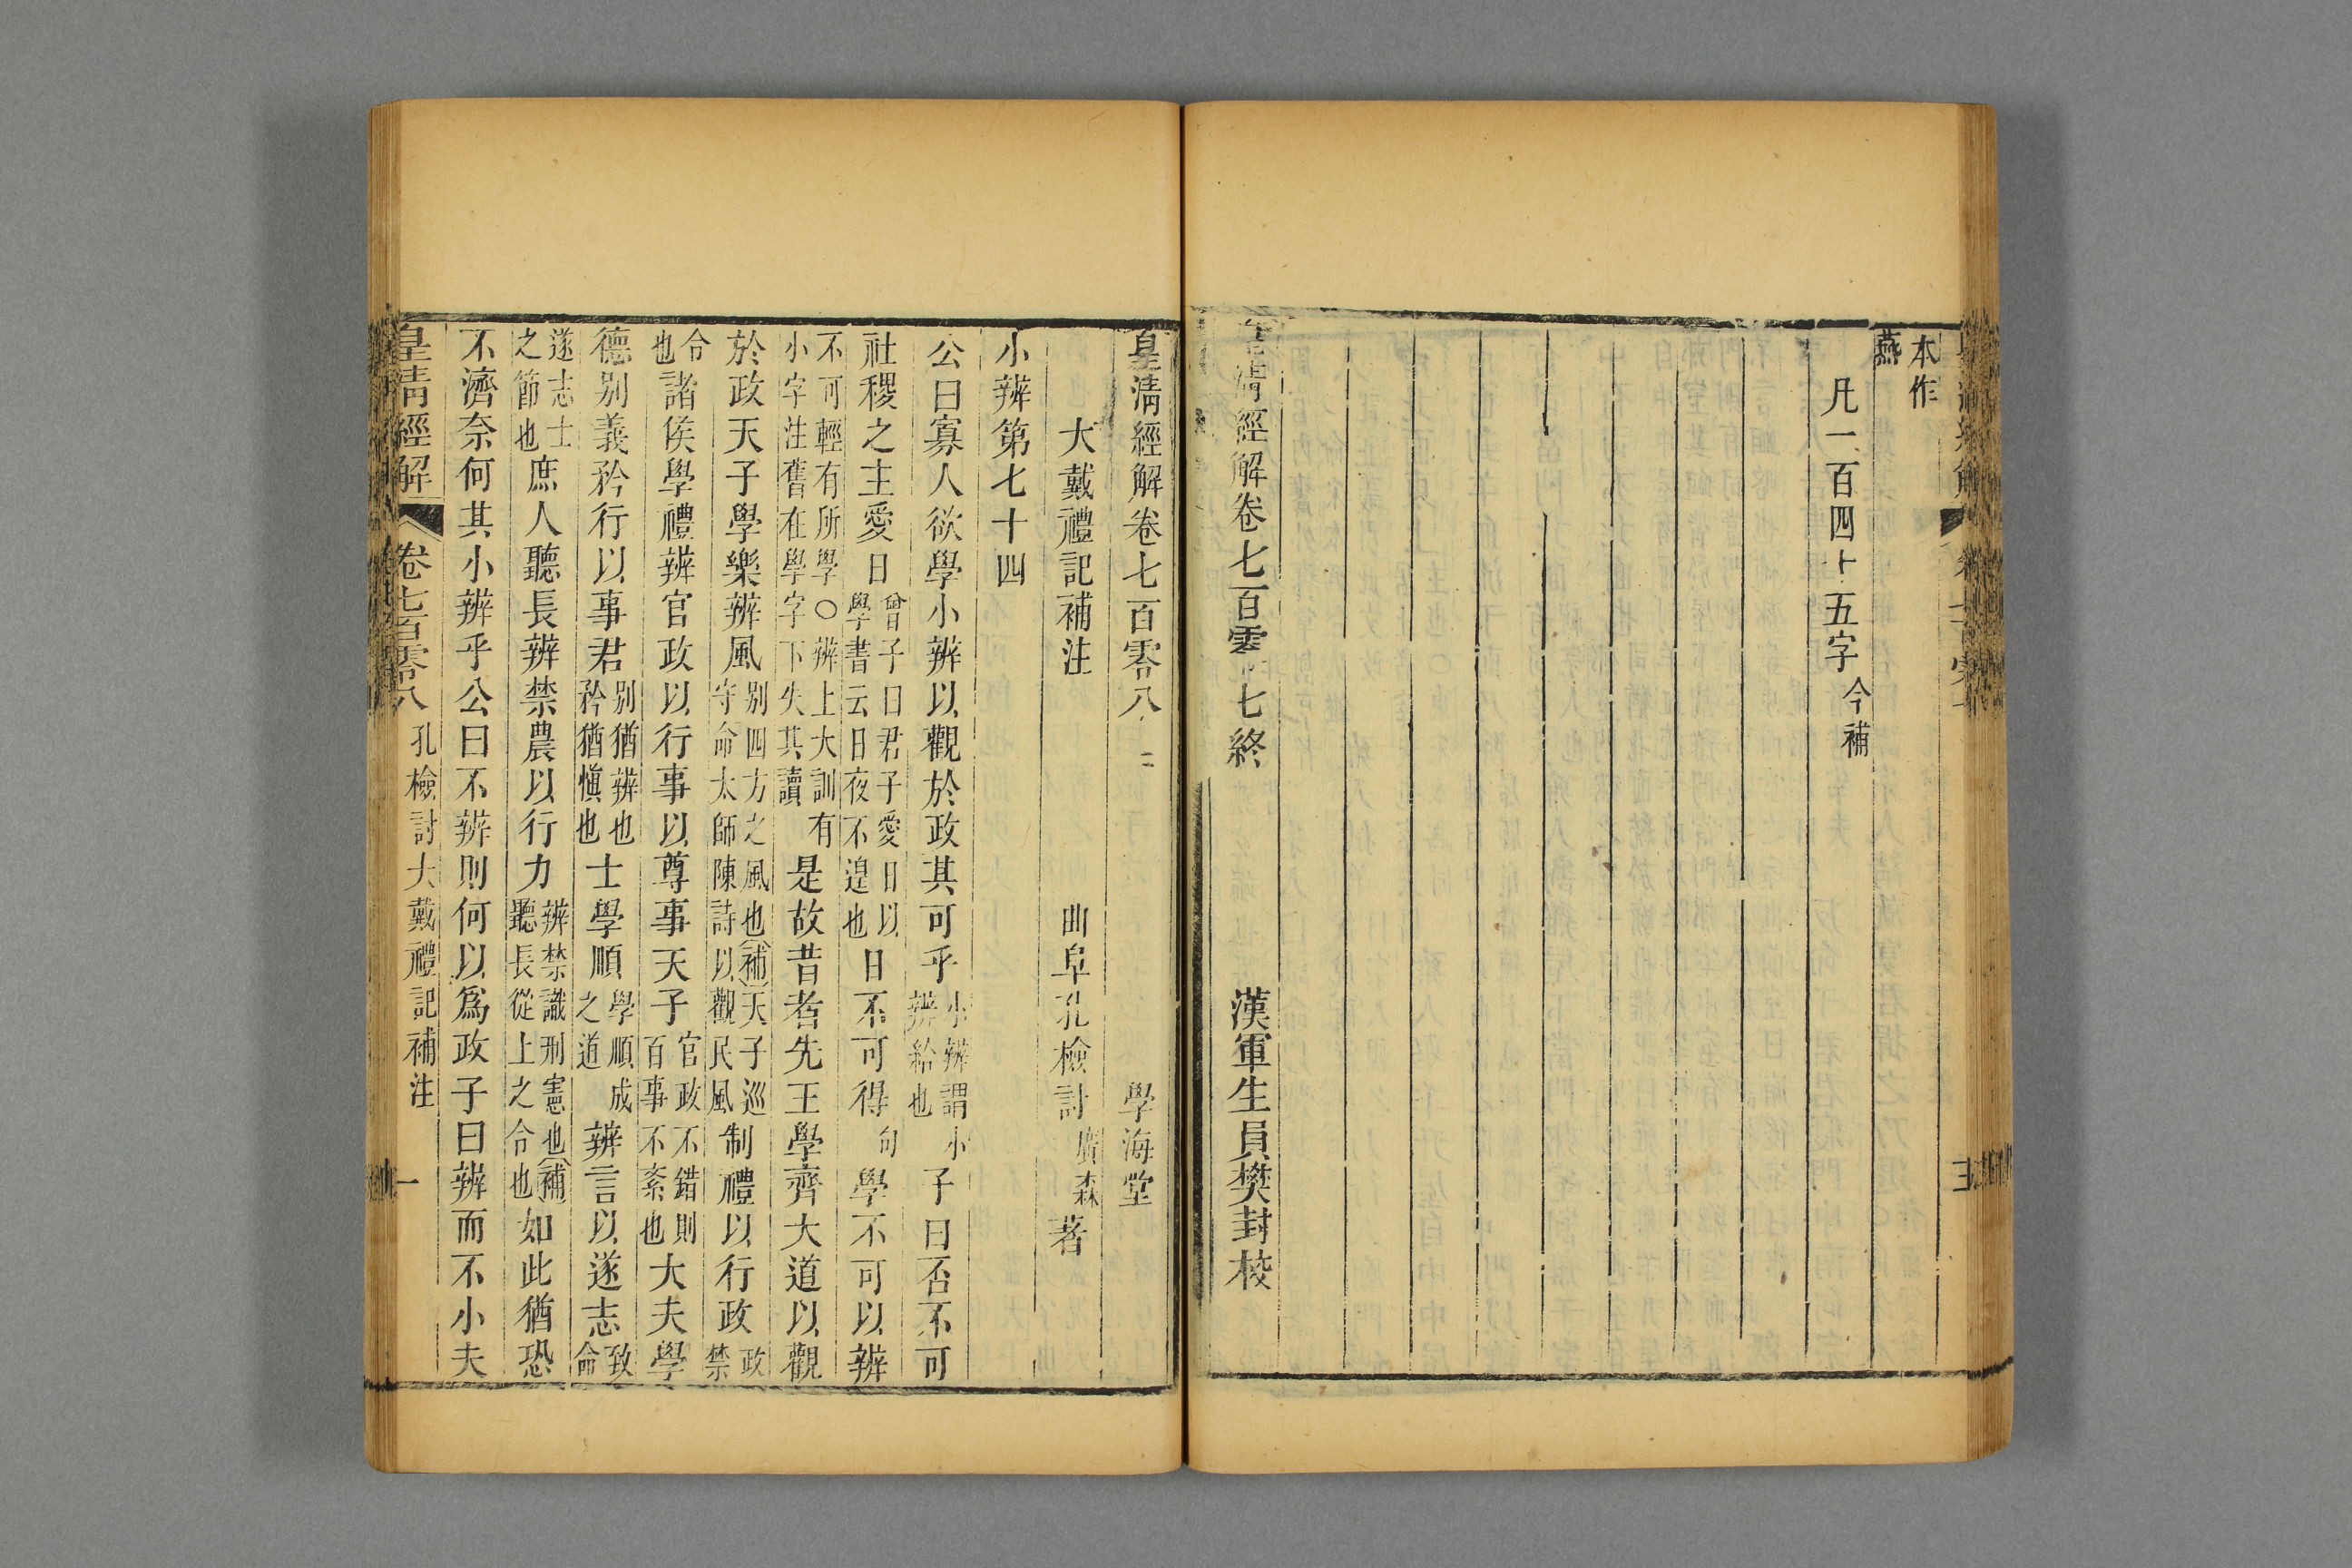 本作
燕
凡一百四十五字今補
皇清經解卷七百零七終
漢軍生員樊封校
皇清經解卷七百零八
學海堂
大戴禮記補注
曲阜孔檢討廣森著
小辨第七十四
公曰寡人欲學小辨以觀於政其可乎小辨謂小辨給也子曰否不可
社稷之主愛日曾子曰君子愛日以學書云日夜不遑也日不可得句學不可以辨
不可輕有所學○辨上大訓有小字注舊在學字下失其讀是故昔者先王學齊大道以觀
於政天子學樂辨風別四方之風也補天子巡守命太師陳詩以觀民風制禮以行政政禁
令也諸侯學禮辨官政以行事以尊事天子官政不錯則百事不紊也大夫學
德別義矜行以事君別猶辨也矜猶愼也士學順學順成之道辨言以遂志致命
遂志士之節也庶人聽長辨禁農以行力辨禁識刑憲也補聽長從上之令也如此猶恐
不濟奈何其小辨乎公曰不辨則何以爲政子曰辨而不小夫
皇清經解
卷七百零八
孔檢討大戴禮記補注
一